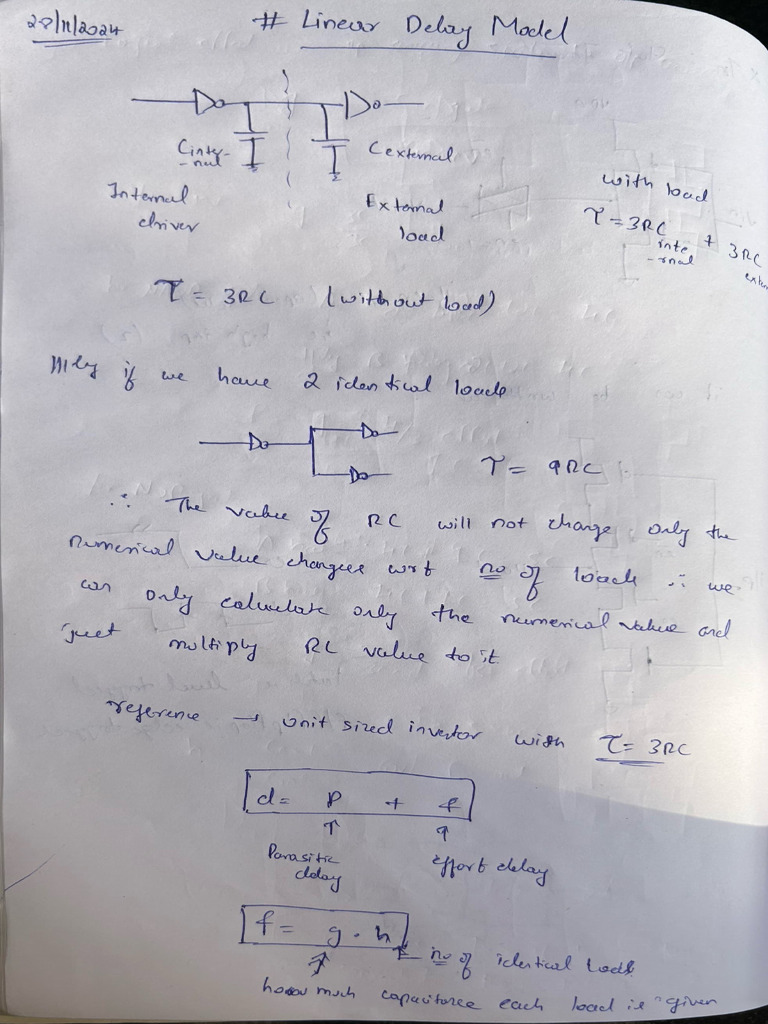 28/11/2024
# Linear Delay Model
Cinte-
-nal
Cexternal
Internal
driver
External
load
with load
τ = 3RC inte-rnal + 3RC exter
τ = 3RC (without load)
|||ly if we have 2 identical loads
τ = 9RC
∴ The value of RC will not change only the
numerical value changes wrt no of loads ∴ we
can only calculate only the numerical value and
just multiply RC value to it
reference → unit sized invertor with τ = 3RC
d = p + f
Parasitic
delay
effort delay
f = g . h
no of identical loads
how much capacitance each load is given